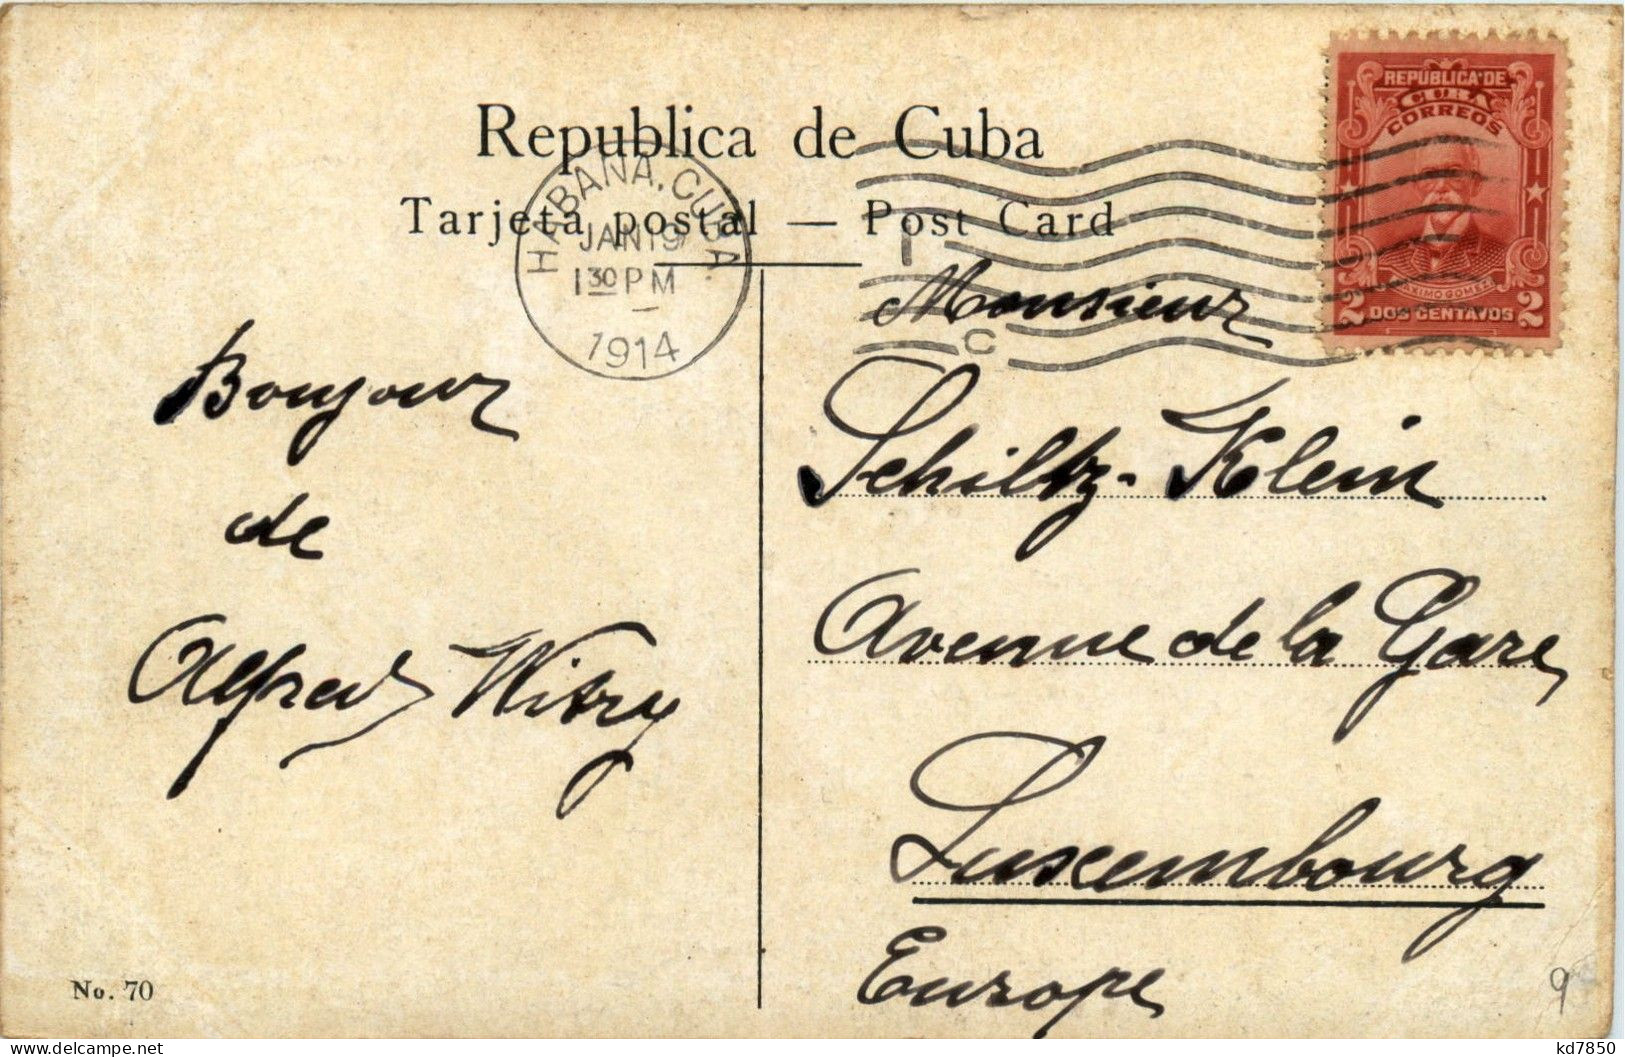 Republica de Cuba
Tarjeta postal — Post Card
HABANA, CUBA
JAN 19
1 30 PM
1914
I
C
REPUBLICA DE
CUBA
CORREOS
MAXIMO GOMEZ
2 DOS CENTAVOS 2
Bonjour
de
Alfred Witry
Monsieur
Schiltz-Klein
Avenue de la Gare
Luxembourg
Europe
No. 70
9
delcampe.net
kd7850